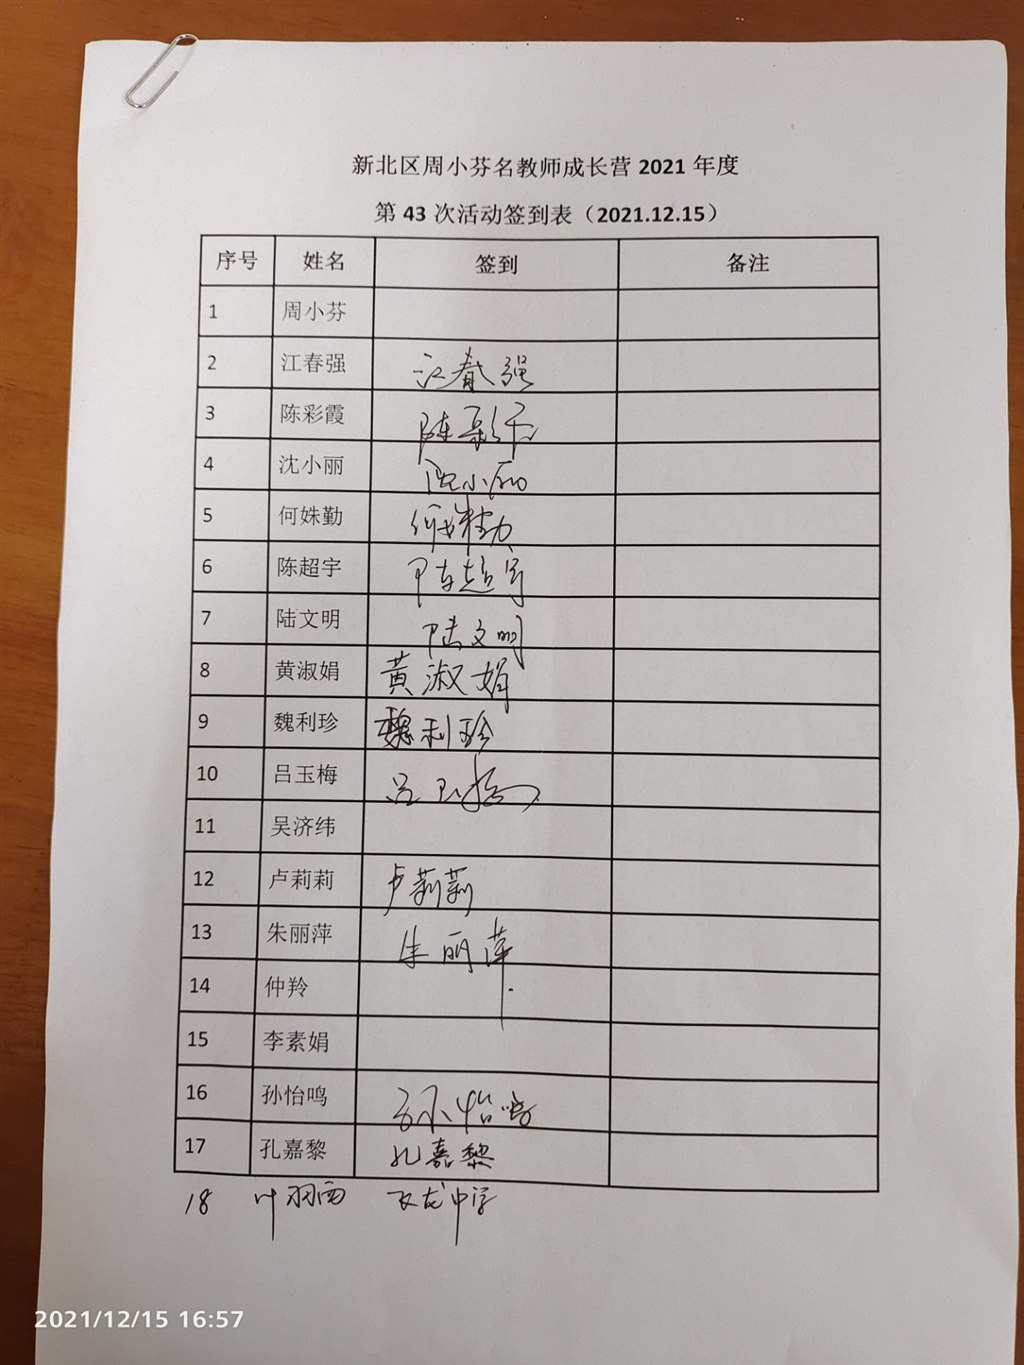 新北区周小芬名教师成长营 2021 年度
第 43 次活动签到表（2021.12.15）
序号 姓名 签到 备注
1 周小芬
2 江春强 江春强
3 陈彩霞 陈彩霞
4 沈小丽 沈小丽
5 何姝勤 何姝勤
6 陈超宇 陈超宇
7 陆文明 陆文明
8 黄淑娟 黄淑娟
9 魏利珍 魏利珍
10 吕玉梅 吕玉梅
11 吴济纬
12 卢莉莉 卢莉莉
13 朱丽萍 朱丽萍
14 仲羚
15 李素娟
16 孙怡鸣 孙怡鸣
17 孔嘉黎 孔嘉黎
18 叶羽西 飞龙中学
2021/12/15 16:57